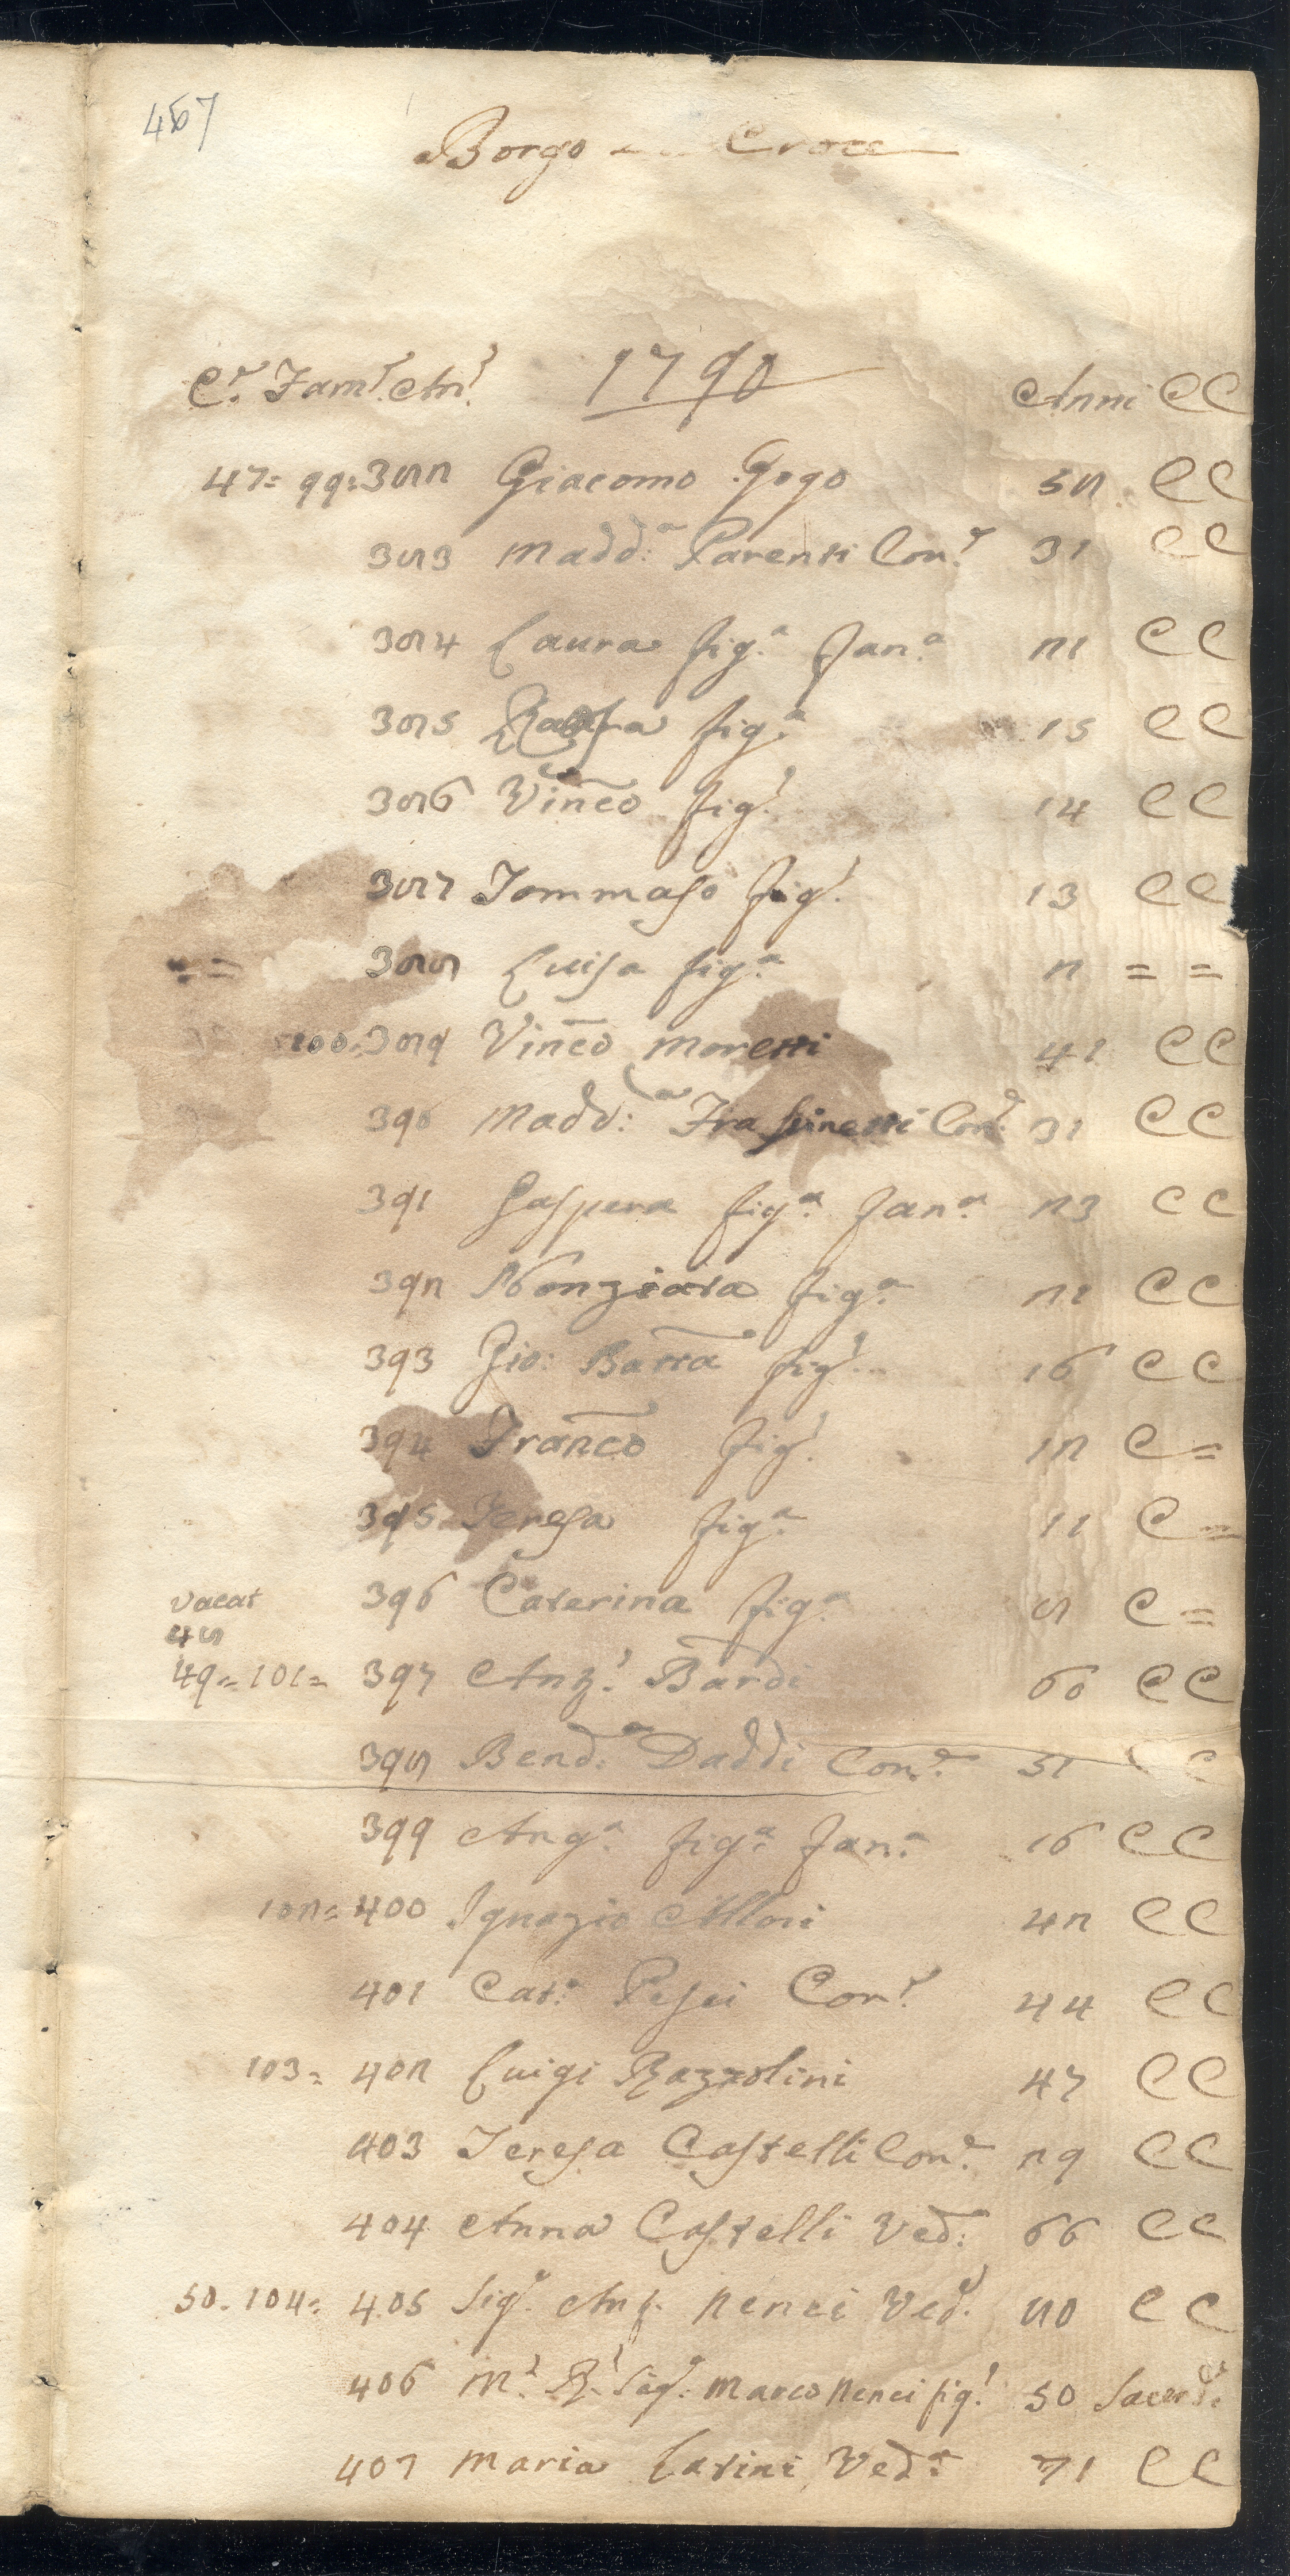 Borgo Croce
C.e Fam.e An.e 1790 Anni CC
47= 99=382 Giacomo Gogo 52 CC
383 Madd:a Parenti Con.e 31 CC
384 Laura fig.a fan.a 21 CC
385 fig.a 15 CC
386 Vinc̄o fig.o 14 CC
387 Tommaso fig.o 13 CC
== 388 Luisa fig.a 2 = =
100=389 Vinc̄o Moretti 41 CC
390 Madd:a Frassinetti Con.e 31 CC
391 Gaspera fig.a fan.a 23 CC
392 Nonziata fig.a 21 CC
393 Gio: Batt̄a fig.o 16 CC
394 Franc̄o fig.o 12 C=
395 Teresa fig.a 11 C=
vacat 396 Caterina fig.a 8 C=
48
49=101= 397 Anz.o Bardi 60 CC
398 Bend:a Daddi Con.e 51 C C
399 Ang.a fig.a fan.a 16 CC
102= 400 Ignazio Allori 42 CC
401 Cat.a Pesci Con.e 44 CC
103= 402 Luigi Bazzolini 47 CC
403 Teresa Castelli Con.e 29 CC
404 Anna Castelli Ved: 66 CC
50. 104= 405 Sig.a Nenci Ved.a 80 CC
406 M.o R.o Sig.e Marco Nenci fig.o 50 Sacerde
407 Maria Latini Ved.a 71 CC